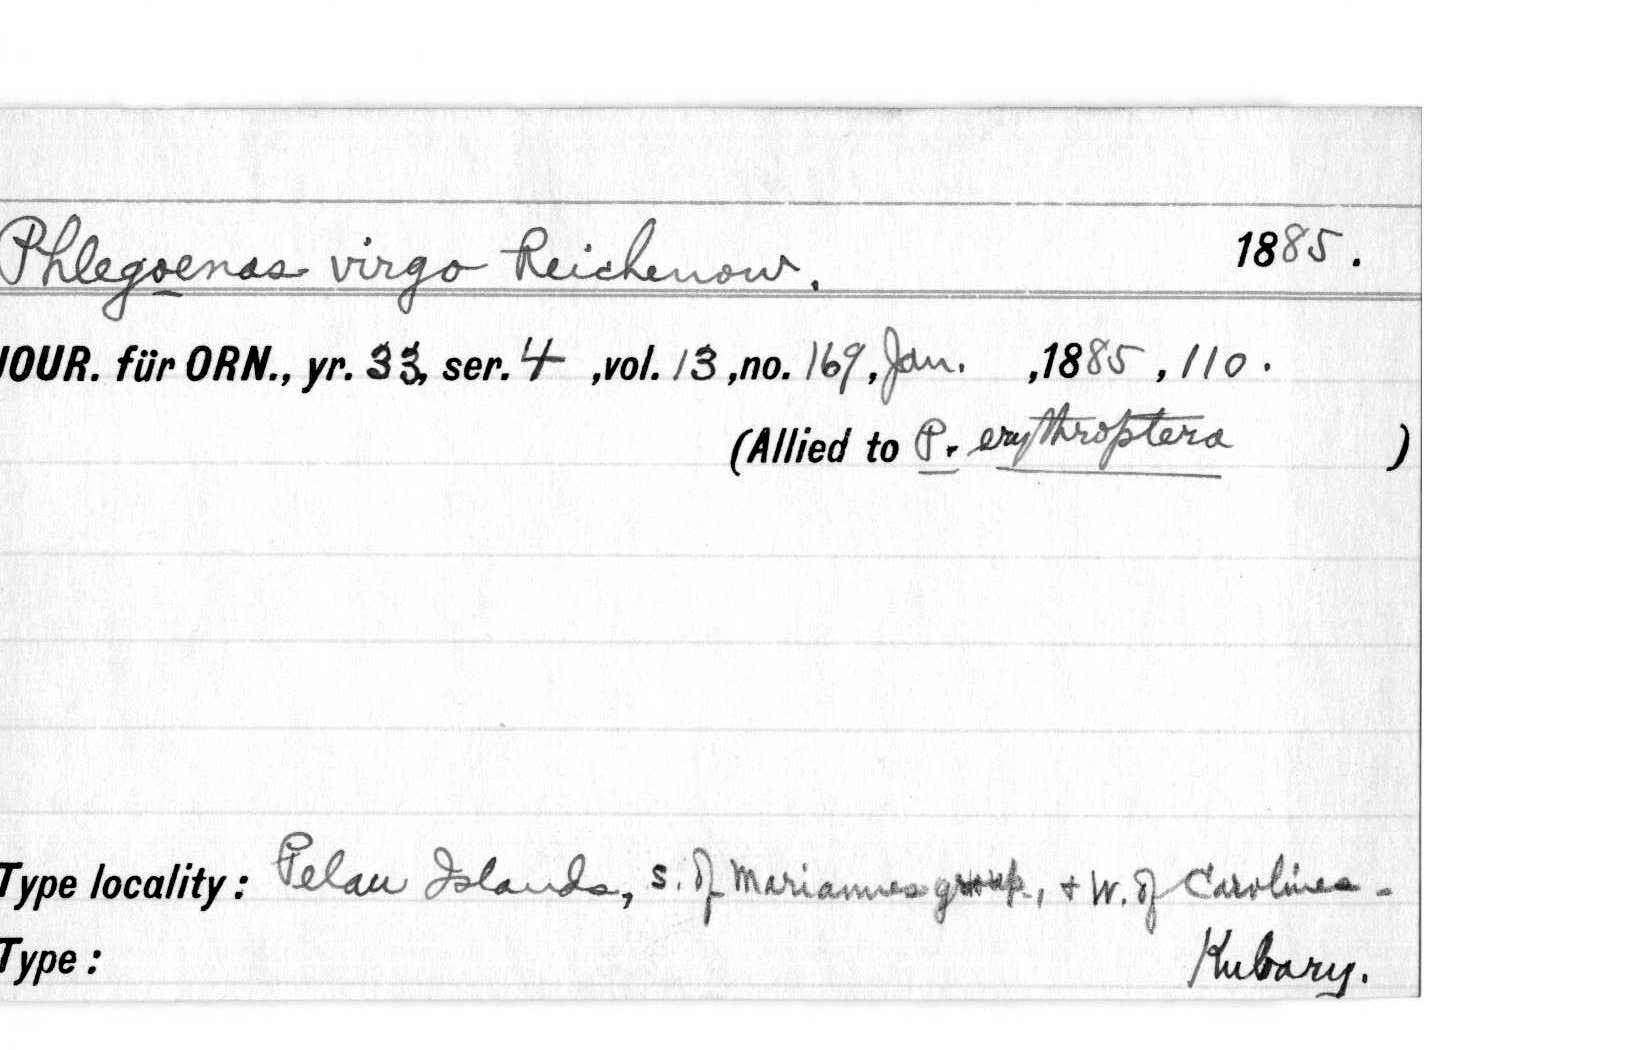 Phlegoenas virgo Reichenow. 1885.
JOUR. für ORN., yr. 33, ser. 4, vol. 13, no. 169, Jan. , 1885, 110.
(Allied to P. erythroptera )
Type locality: Pelau Islands, s. of Mariannes group, + W. of Carolines.
Type: Kubary.